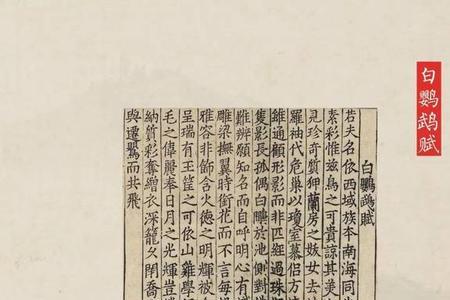 白鹦鹉赋
白鸚鵡賦
若夫名依西域族本南海同
素彩惟茲鳥之可貴諒其美
見珍奇質狎蘭房之妖女去
羅袖代危巢以瓊室慕侶方
雖通顧形影而非匹經過珠
隻影長孤偶白鷴於池側對
難辨願知名而自呼明心有
雕梁撫翼時銜花而不言每
雅容非飾含火德之明輝被
呈瑞有玉筐之可依山雞學
毛之偉麗奉日月之光輝豈
納質彩奪繒衣深籠久閉喬
與遷鶯而共飛